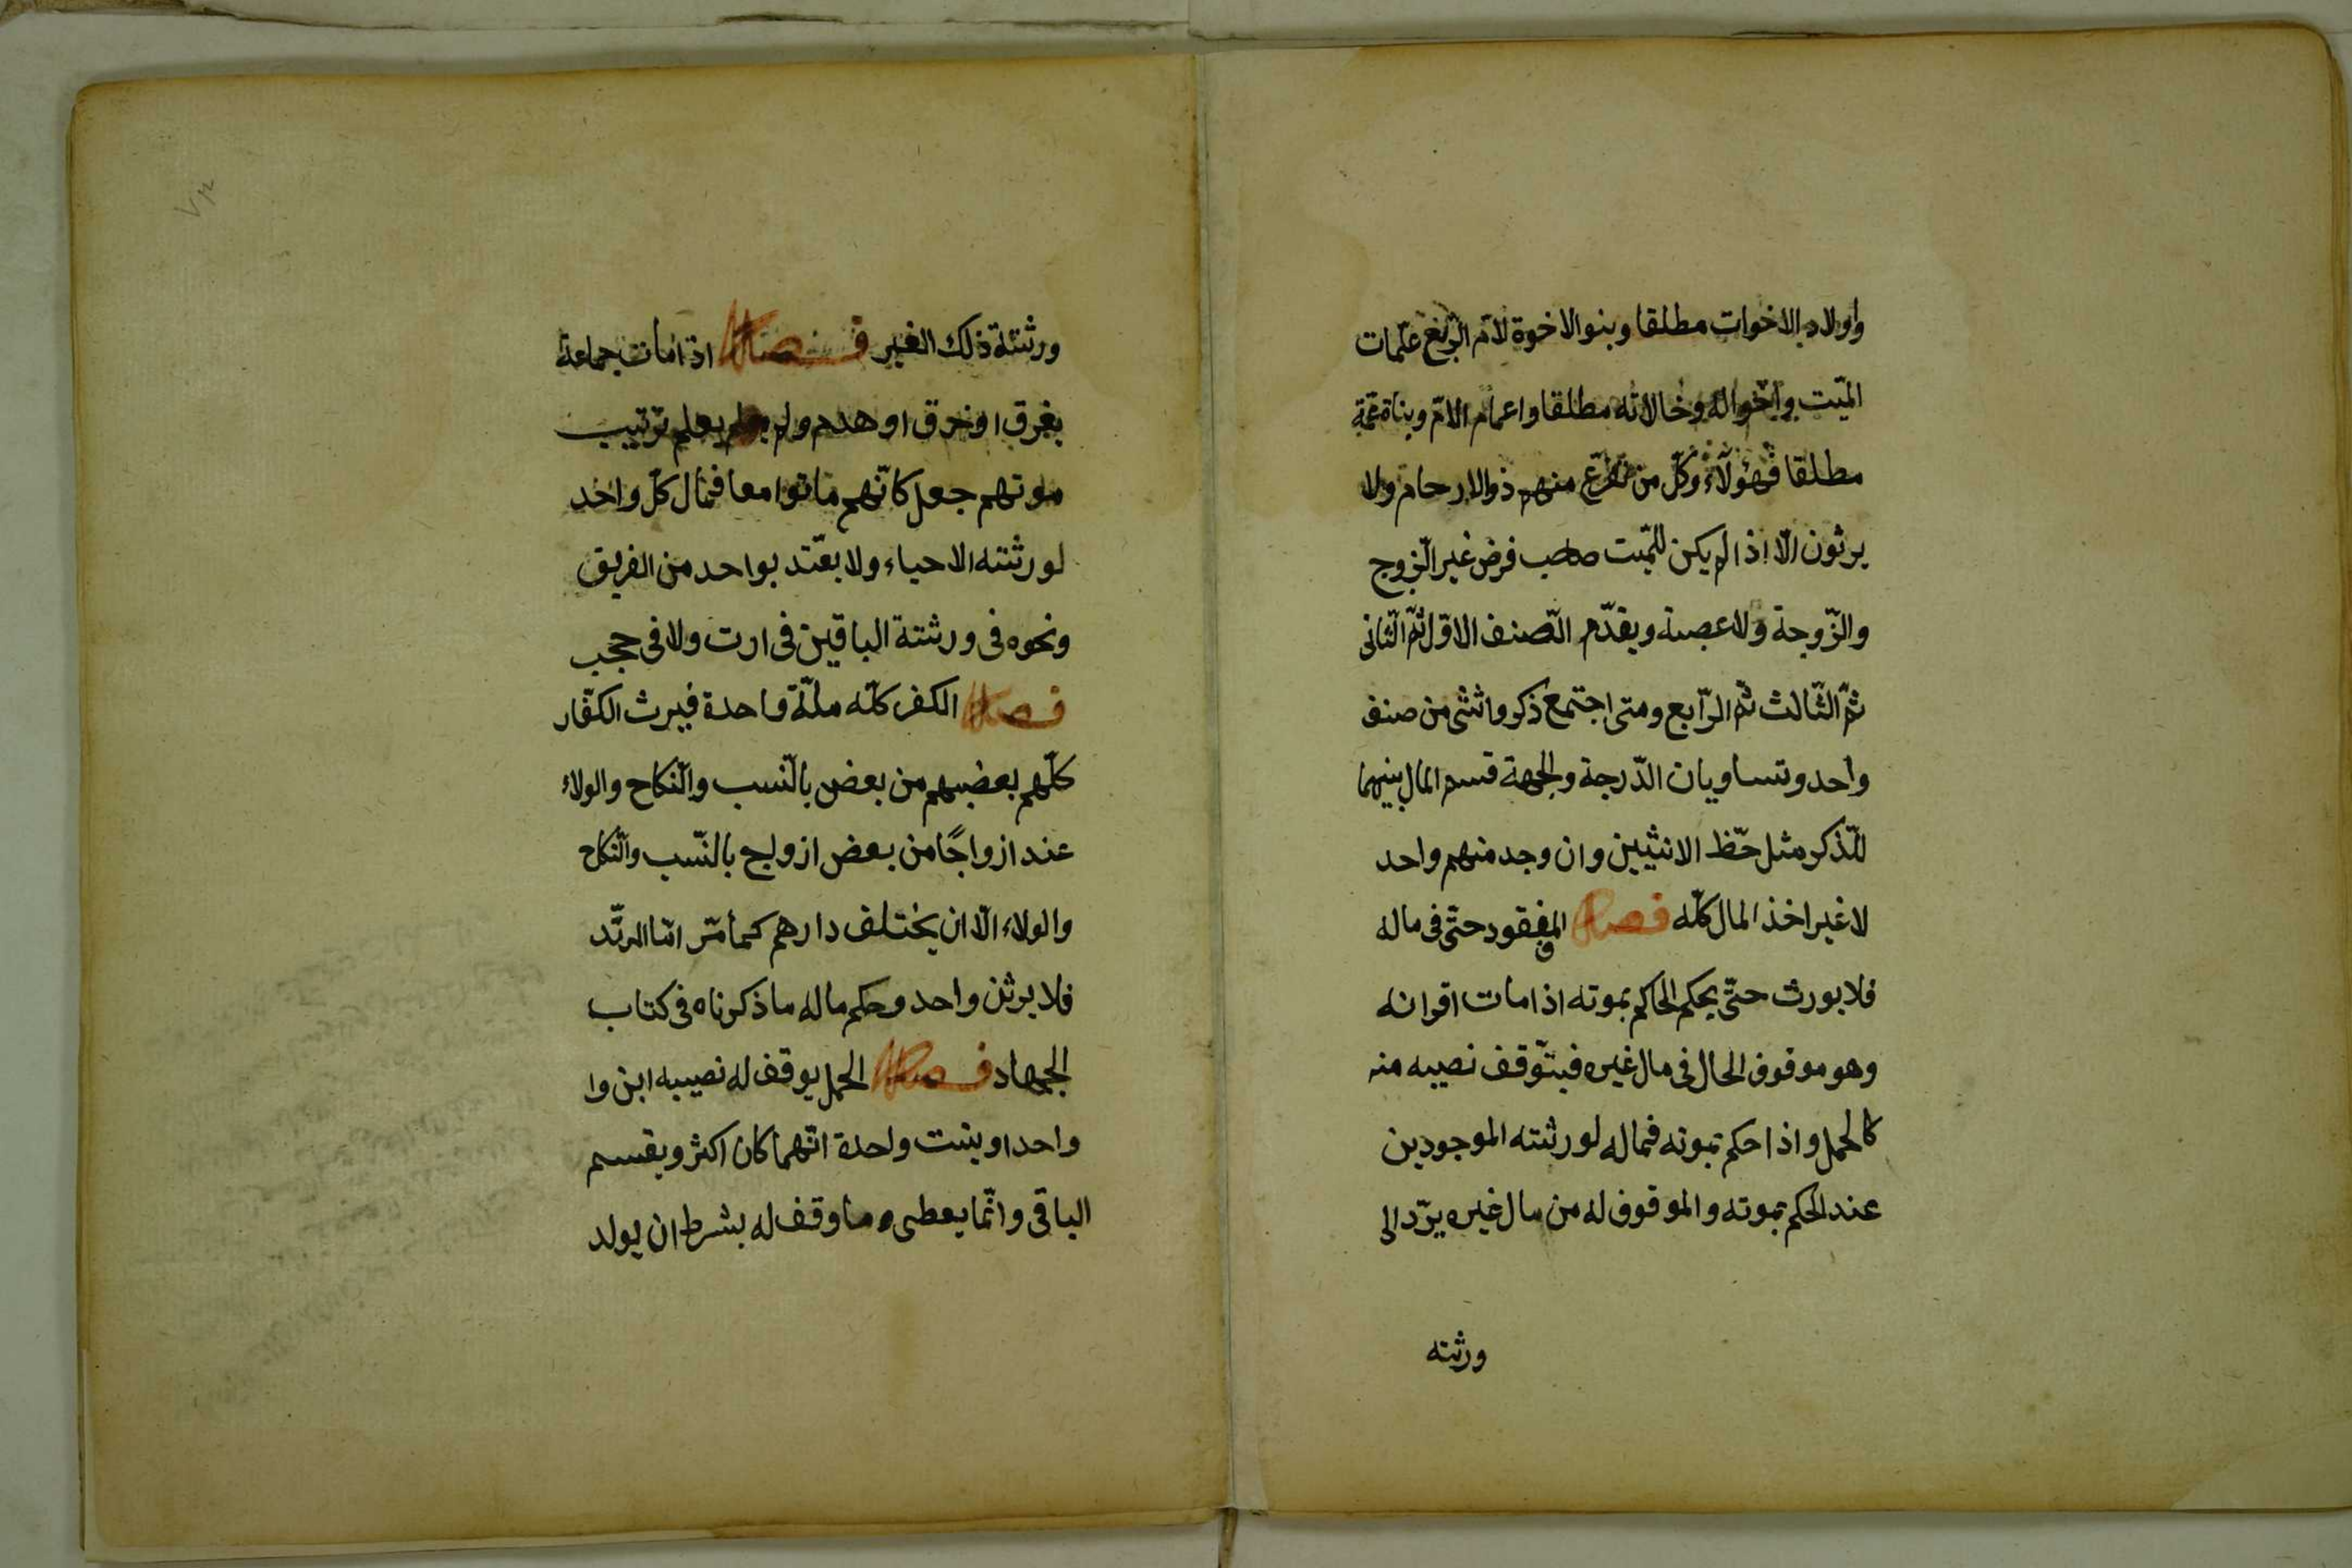 واولاد الاخوات مطلقا وبنوا الاخوة لامّ الرّبع عمّات
الميّت واخواله وخالاته مطلقا واعمام الامّ وبناة عمّة
مطلقا فهؤلآء وكلّ من تفرّع منهم ذوالارحام ولا
يرثون الّا اذا لم يكن للميّت صاحب فرض غير الزّوج
والزّوجة ولا عصبة ويقدّم الصّنف الاوّل ثمّ الثّانى
ثمّ الثّالث ثمّ الرّابع ومتى اجتمع ذكر وانثى من صنف
واحد وتساويان الدّرجة والجهة قسم المال بينهما
للّذكر مثل حّظ الانثيين وان وجد منهم واحد
لا غير اخذ المال كلّه فصل المفقود حتّى فى ماله
فلا يورث حتّى يحكم الحاكم بموته اذا مات اقرانه
وهو موقوف الحال فى مال غيره فيتوّقف نصيبه منه
كالحمل واذا حكم بموته فماله لورثته الموجودين
عند الحكم بموته والموقوف له من مال غيره يردّ الى
ورثته
ورثتة ذلك الغير فصل اذا مات جماعة
بغرق او خرق او هدم ولم يعلم ترتيب
موتهم جعل كانّهم ماتوا معا فمال كلّ واحد
لورثته الاحياء ولا يعتّد بواحد من الفريق
ونحوه فى ورثتة الباقين فى ارت ولا فى حجب
فصل الكفر كلّه ملّة واحدة فيرث الكفّار
كلّهم بعضهم من بعض بالنّسب والنّكاح والولاء
عند ازواجًا من بعض ازواج بالنّسب والنّكاح
والولاء الّا ان يختلف دارهم كما مّر امّا المرتّد
فلا يرثن واحد وحكم ماله ما ذكرناه فى كتاب
الجهاد فصل الحمل يوقف له نصيبه ابن وا
واحد او بنت واحدة ايّهما كان اكثر ويقسم
الباقى وانّما يعطى وما وقف له بشرط ان يولد